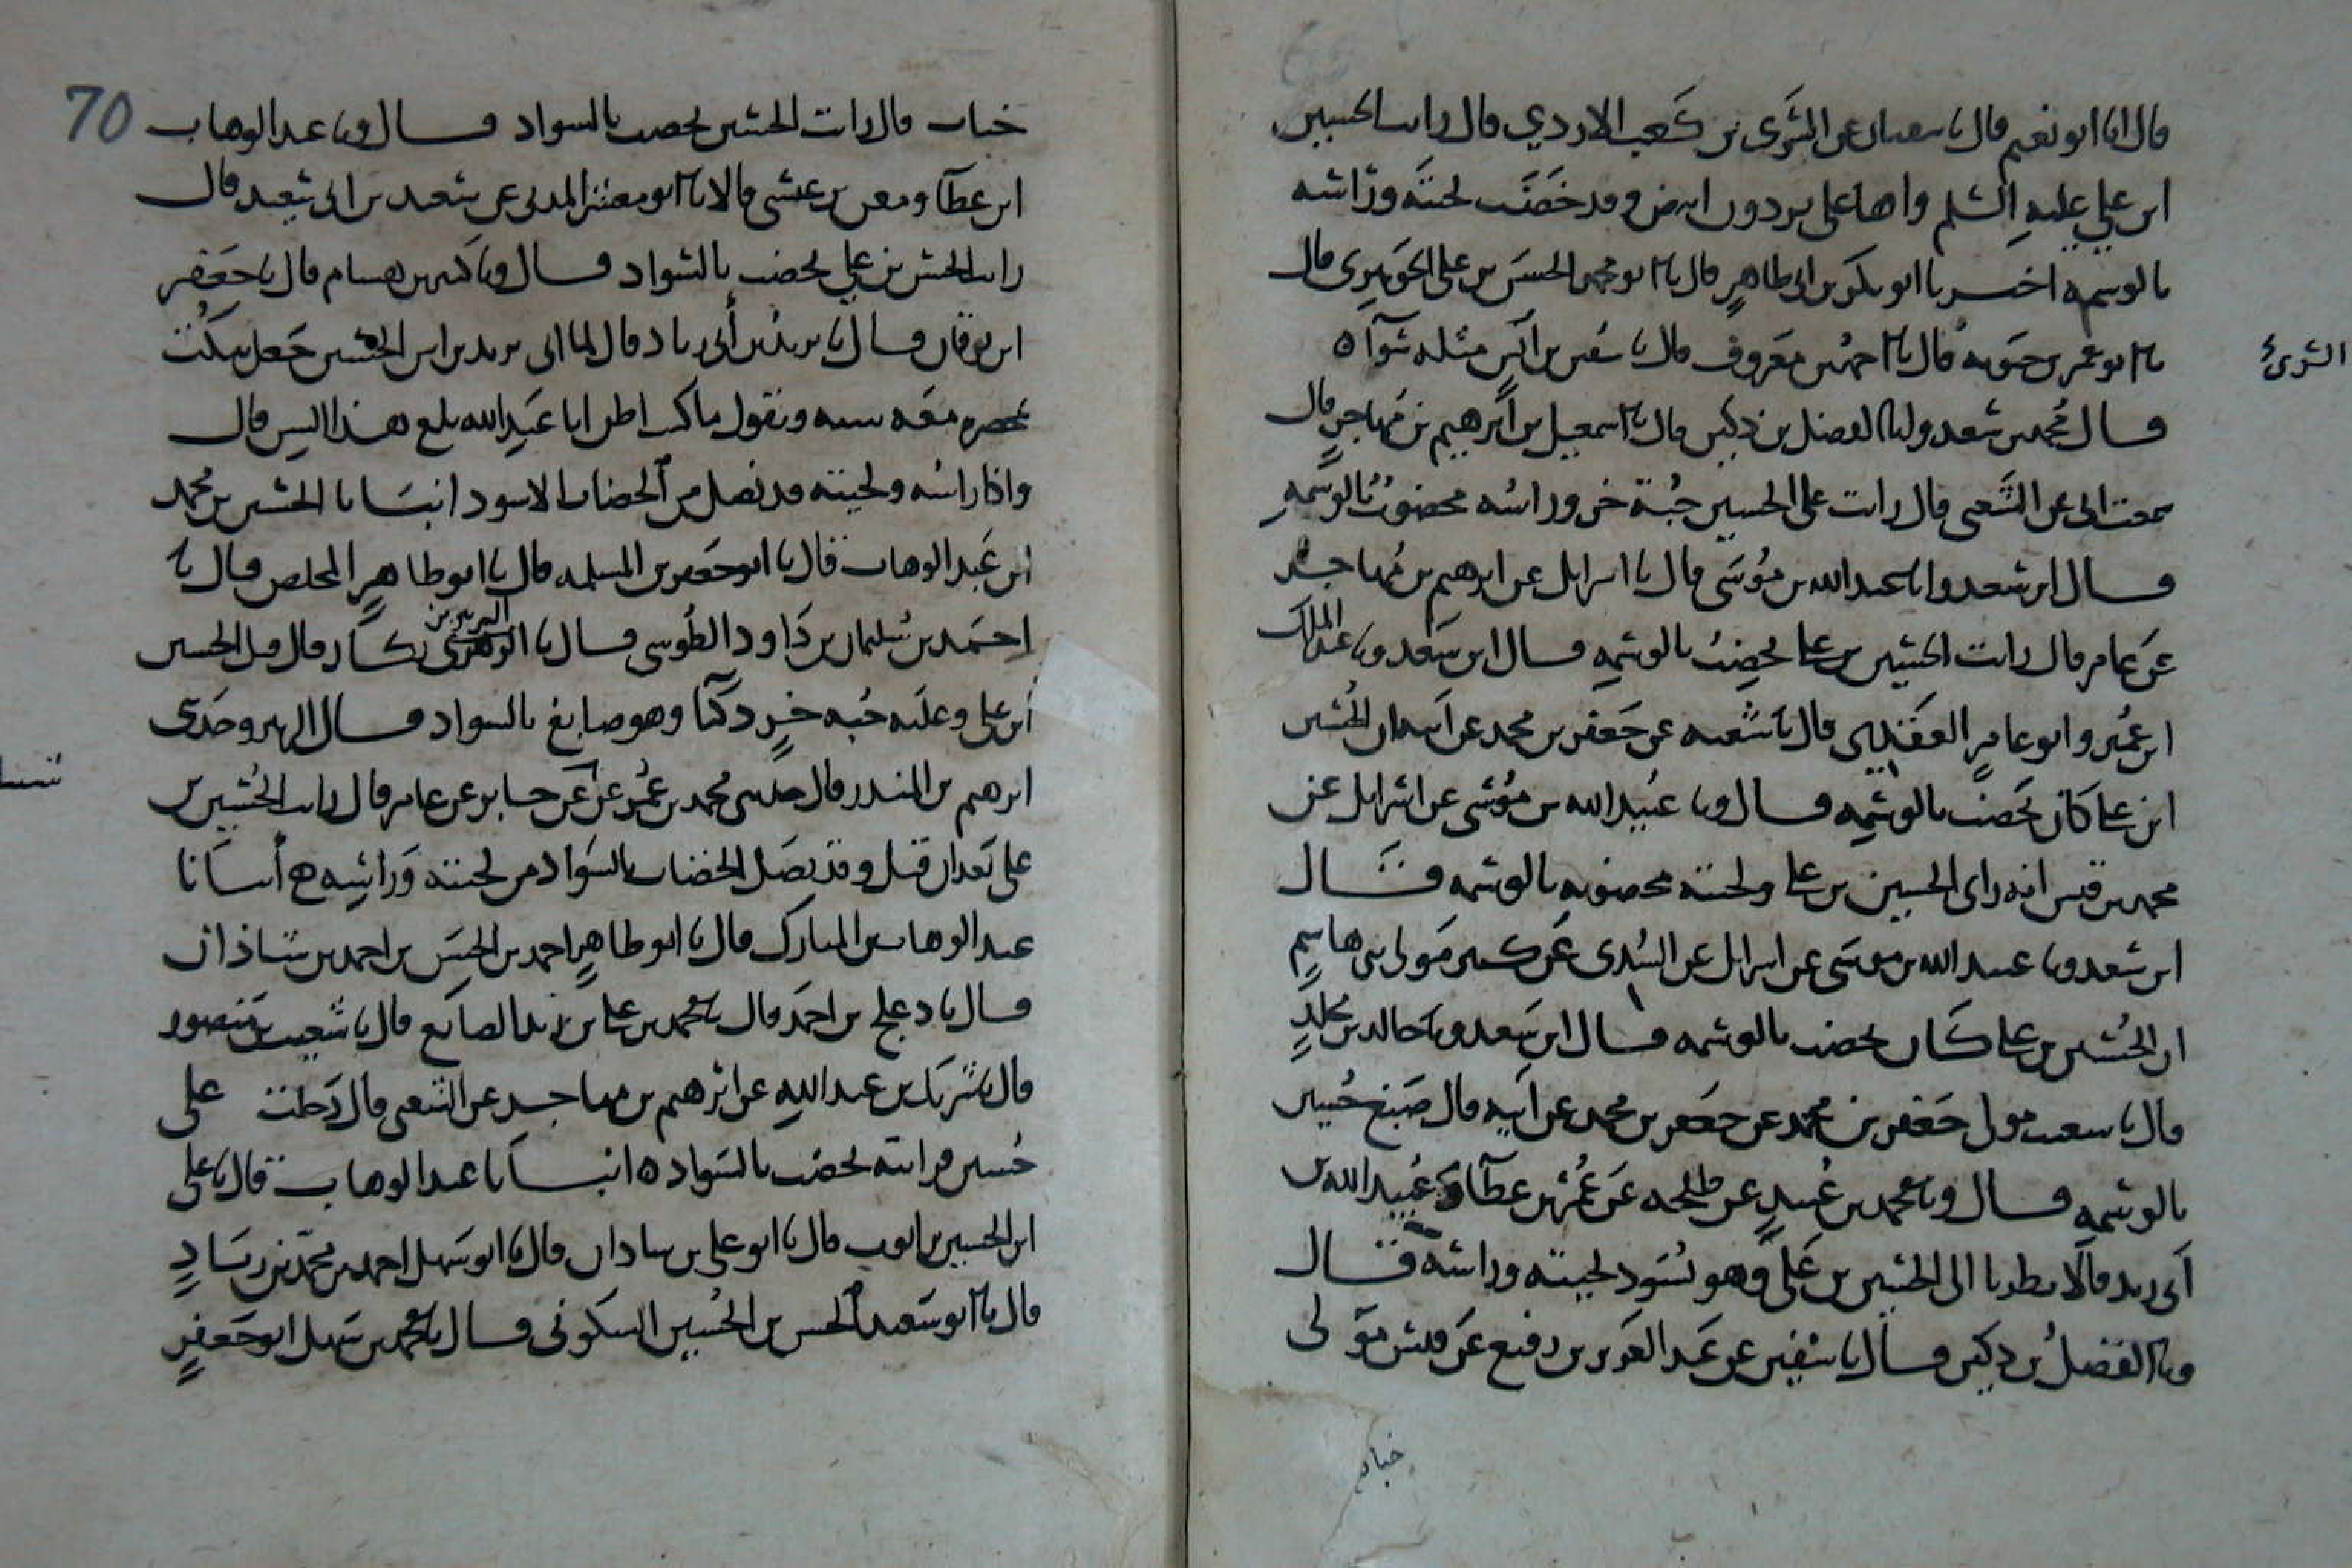 قال انا ابو نعيم قال نا سفيان عن السري بن كعب الازدي قال رايت الحسين
ابن علي عليه السلم واها على بردون ابيض وقد خضب لحيته وراسه
بالوسمه اخبرنا ابو بكر بن ابي طاهر قال نا ابو محمد الحسن بن علي الجوهري قال
نا ابو عمر بن حيويه قال نا احمد بن معروف قال نا مثله سوآ ه
السري
قال محمد بن سعد وانا الفضل بن دكين قال نا اسمعيل بن ابرهيم بن مهاجر قال
سمعت ابي عن الشعبي قال رايت على الحسين جبة خز وراسه مخضوب بالوسمه
قال ابن سعد وانا عبيد الله بن موسى قال نا اسرايل عن ابرهيم بن مهاجر
عن عامر قال رايت الحسين بن علي يخضب بالوسمه قال ابن سعد ونا عبد الملك
ابن عمير وابو عامر العقدي قال نا شعبه عن جعفر بن محمد عن ابيه ان الحسين
ابن علي كان يخضب بالوسمه قال ونا عبيد الله بن موسى عن اسرايل عن
محمد بن قيس انه راى الحسين بن علي ولحيته مخضوبه بالوسمه قال
ابن سعد ونا عبيد الله بن موسى عن اسرايل عن السدي عن كثير مولى بني هاشم
ان الحسين بن علي كان يخضب بالوسمه قال ابن سعد ونا خالد بن مخلد
قال نا مولى جعفر بن محمد عن جعفر بن محمد عن ابيه قال صبغ حسين
بالوسمه قال ونا محمد بن عبيد عن طلحه عن عمر بن عطآ وعبيد الله بن
ابي يزيد قالا نظرنا الى الحسين بن علي وهو يسود لحيته وراسه قال
ونا الفضل بن دكين قال نا سفين عن عبد العزيز بن رفيع عن قيس مولى
خباب
70
خباب قال رايت الحسين يخضب بالسواد قال ونا عبد الوهاب
ابن عطآ ومعن بن عيسى قالا نا ابو معشر المدني عن سعيد بن ابي سعيد قال
رايت الحسن بن علي يخضب بالسواد قال ونا كثير بن هشام قال نا جعفر
ابن برقان قال نا يزيد بن ابي زياد قال لما اتي يزيد براس الحسين جعل ينكت
بمخصره معه سنه ويقول ما كنت اظن ابا عبد الله بلغ هذا السن قال
واذا راسه ولحيته قد نصل من الخضاب الاسود انبانا الحسين بن محمد
ابن عبد الوهاب قال نا ابو جعفر بن المسلمه قال نا ابو طاهر المخلص قال نا
احمد بن سليمان بن داود الطوسي قال نا الزبير بن بكار قال قتل الحسين
ابن علي وعليه جبه خز دكنا وهو صابغ بالسواد قال الزبير وحدثني
ابرهيم بن المنذر قال حدثني محمد بن عمر عن جابر عن عامر قال رايت الحسين بن
علي بعد ان قتل وقد نصل الخضاب بالسواد من لحيته وراسه ه انبانا
عبد الوهاب بن المبارك قال نا ابو طاهر احمد بن الحسن بن احمد بن شاذان
قال نا دعلج بن احمد قال نا محمد بن علي بن زيد الصايغ قال نا سعيد بن منصور
قال نا شريك بن عبد الله عن ابرهيم بن مهاجر عن الشعبي قال دخلت على
حسين فرايته يخضب بالسواد ه انبانا عبد الوهاب قال نا علي
ابن الحسين بن ايوب قال نا ابو علي بن شاذان قال نا ابو سهل احمد بن محمد بن زياد
قال نا ابو سعيد الحسن بن الحسين السكوني قال نا محمد بن سهل ابو جعفر